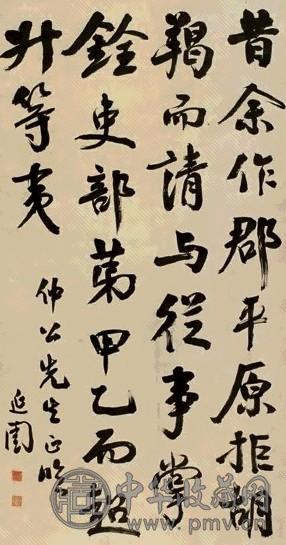 昔余作郡平原拒胡
羯而請与從事掌
銓吏部第甲乙而超
升等夷
仲公先生正腕
延闓
中华收藏网
www.pmv.cn